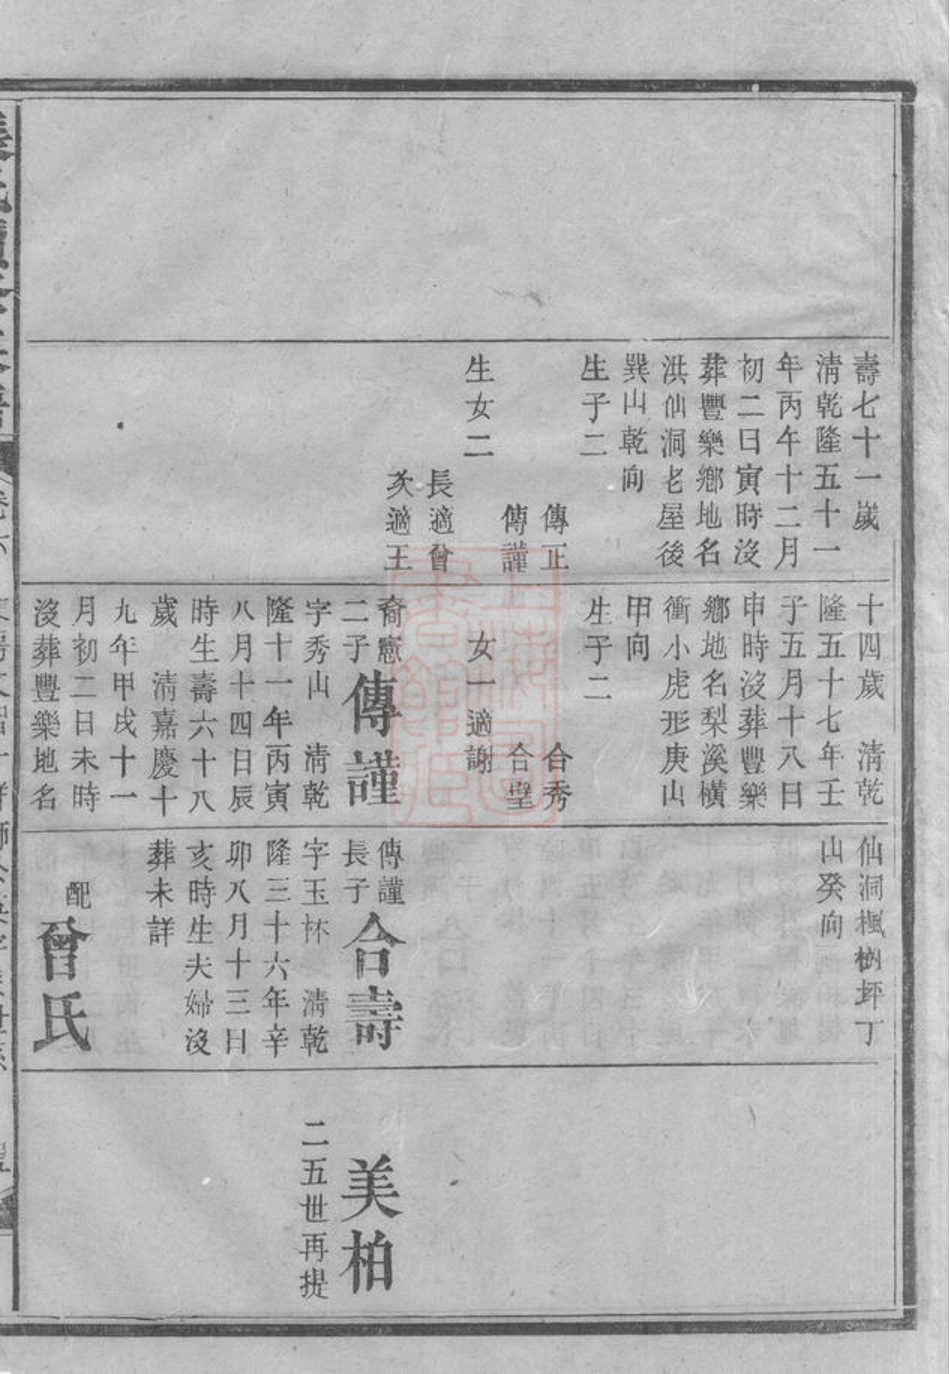 壽七十一歲
清乾隆五十一
年丙午十二月
初二日寅時沒
葬豐樂鄉地名
洪仙洞老屋後
巽山乾向
生子二
傳正
傳謹
生女二
長適曾
次適王
十四歲 清乾
隆五十七年壬
子五月十八日
申時沒葬豐樂
鄉地名梨溪橫
衝小虎形庚山
甲向
生子二
合秀
合璧
女一適謝
裔憲
二子
傳謹
字秀山 清乾
隆十一年丙寅
八月十四日辰
時生壽六十八
歲 清嘉慶十
九年甲戌十一
月初二日未時
沒葬豐樂地名
仙洞楓樹坪丁
山癸向
傳謹
長子
合壽
字玉林 清乾
隆三十六年辛
卯八月十三日
亥時生夫婦沒
葬未詳
配
曾氏
美柏
二五世再提